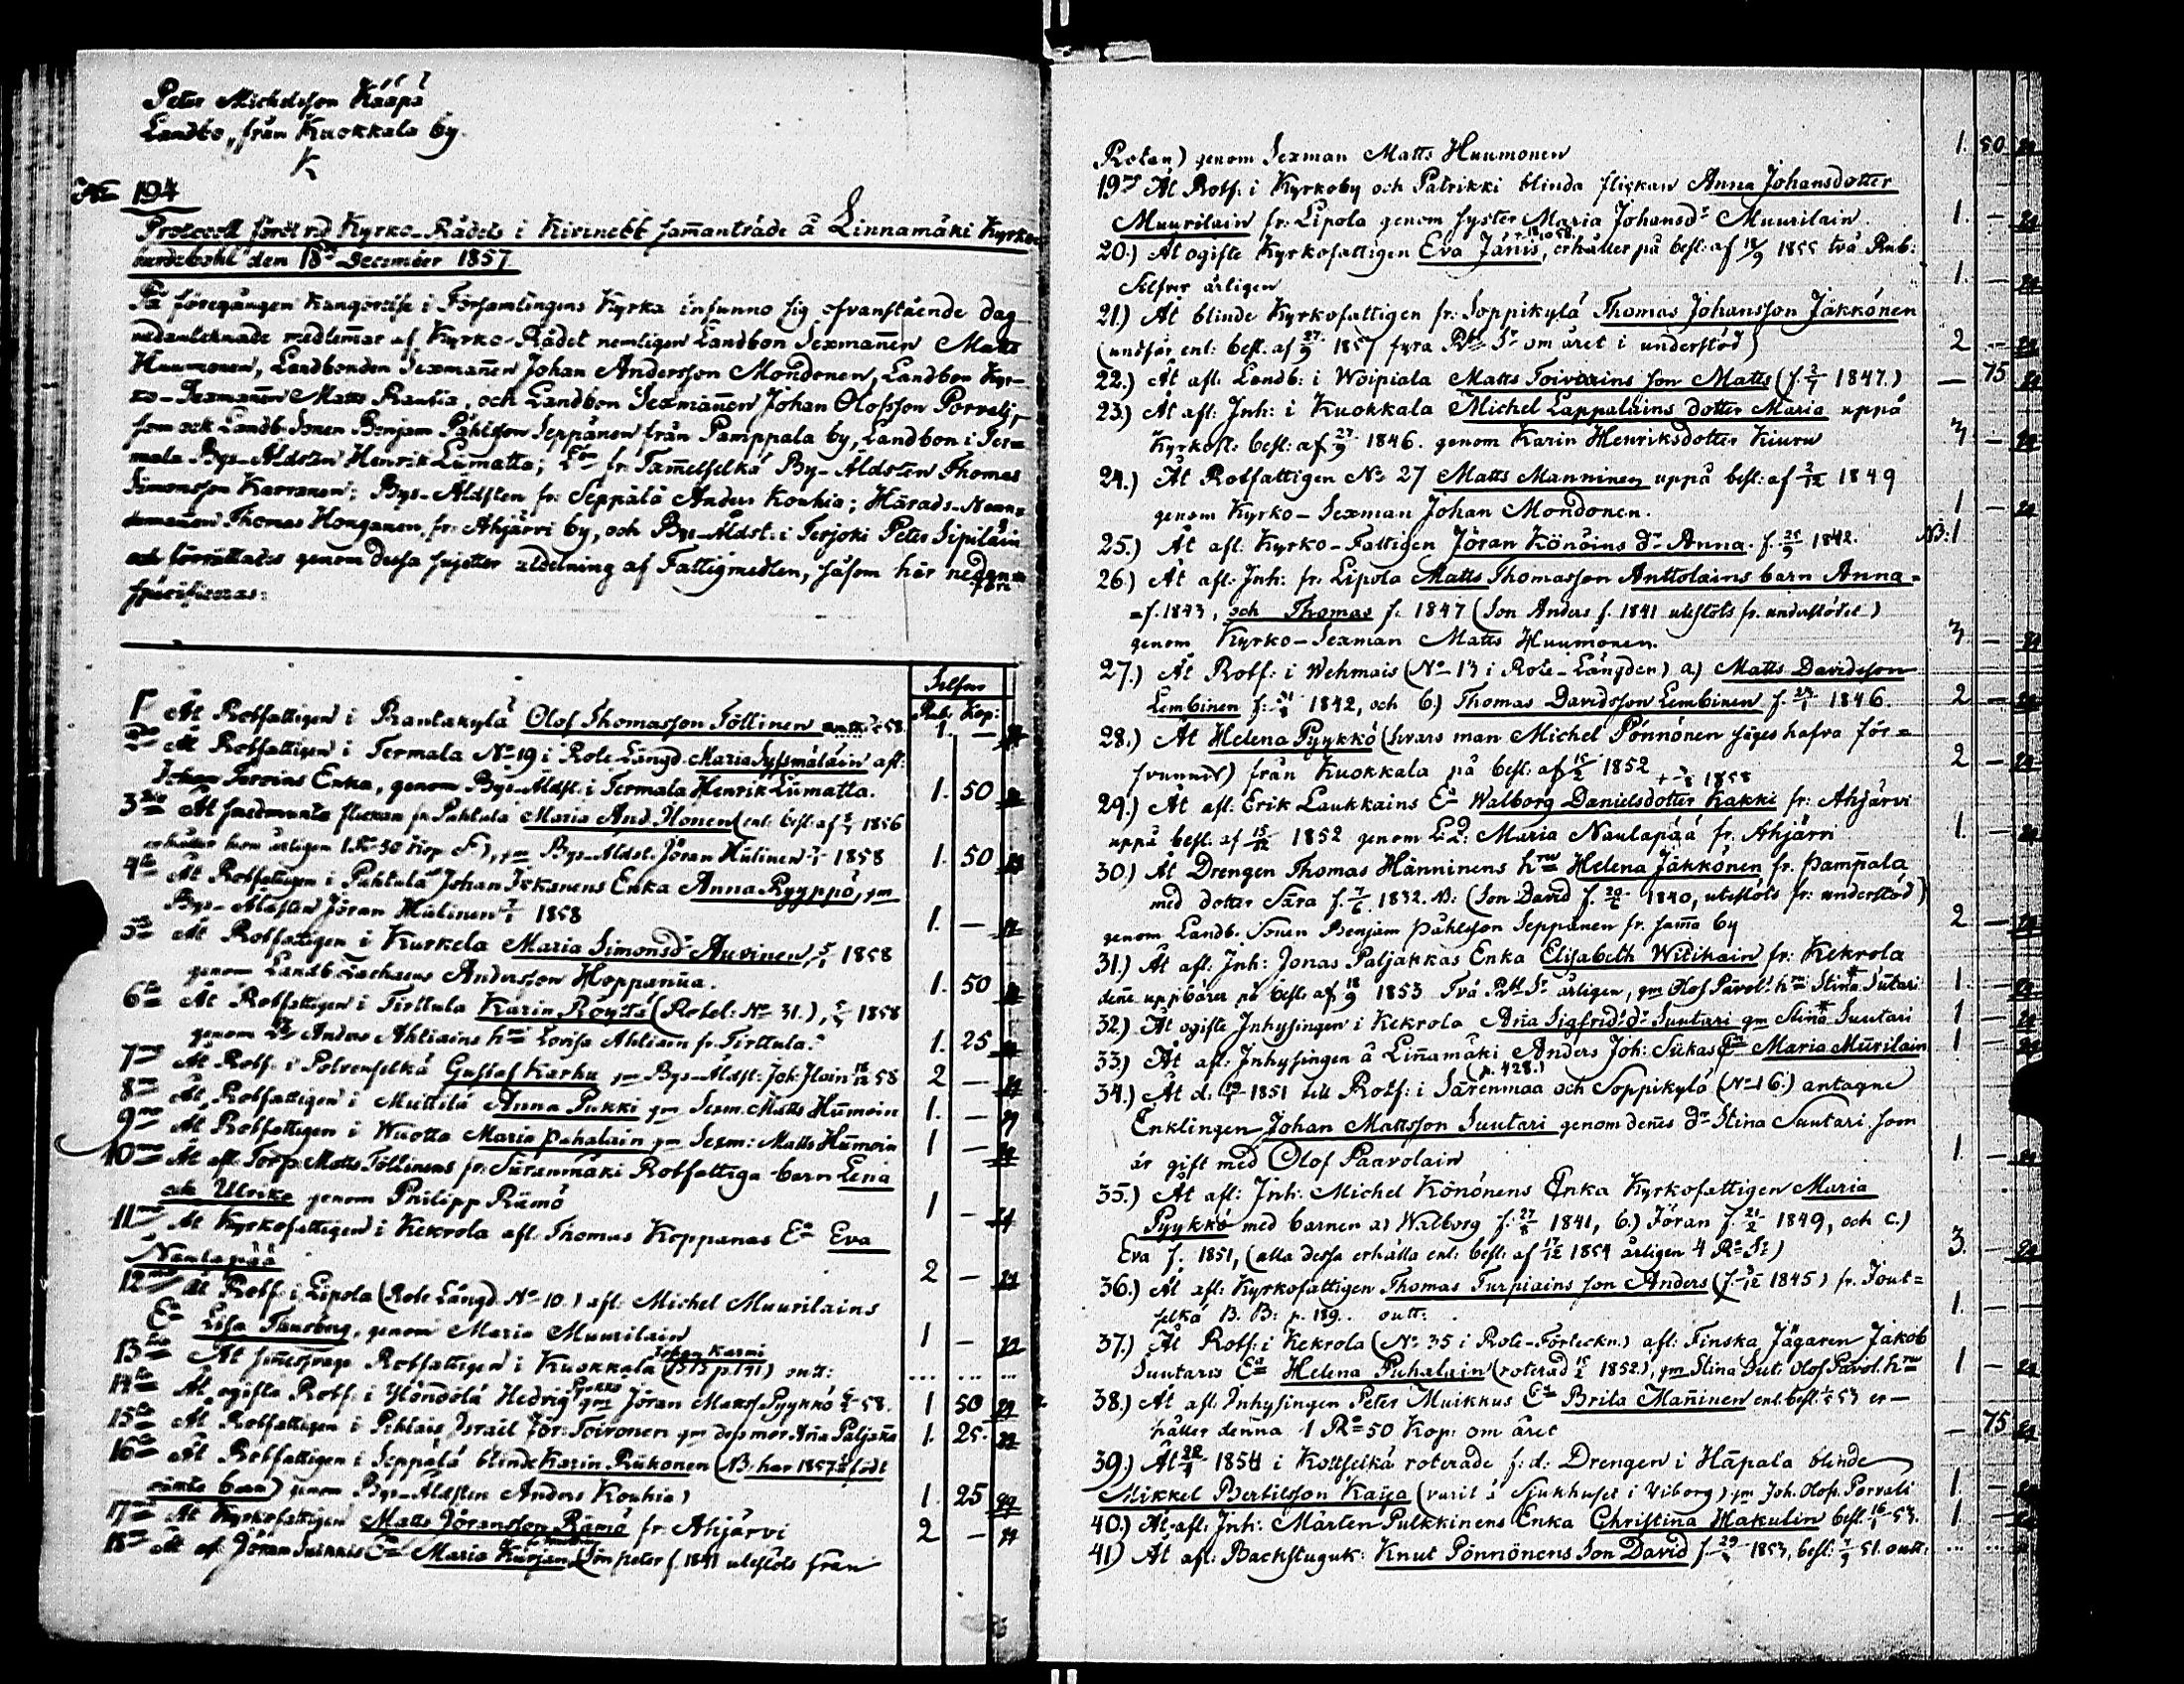 Peter Michelsson Kääpä
Landbo, från Kuokkala by.
194
Protocoll fördt vid Kyrko-Rådets i Kivinebb sam̅anträde å Linnamäki Kyrko
herdebohl den 18de December 1857
På föregången Kungörelse i Församlingens Kyrka infunno sig ofvanstående dag
nedantecknade medlem̅ar af Kyrko-Rådet nemligen Landbon Sexman̅en Matts
Huumonen, Landbonden Sexman̅en Johan Andersson Mondonen, Landbon Kyr-
ko-Sexman̅en Matts Rautia, och Landbon Sexman̅en Johan Olofsson Porvali,
som ock Landb. Sonen Benjam Påhlsson Seppänen från Pamppala by, Landbon i Ter=
mala Bys-Äldsten Henrik Lumatta; fr. Tam̅elselkä By-Äldsten Thomas
Simonsson Karvanen; Bys-Äldsten fr: Seppälä Anders Kouhia; Härads-Nämn=
demannen Thomas Honganen fr. Ahjärvi by, och Bys-Äldst. i Terjoki Peter Sipiläin
och förrättades genom dessa utdelning af Fattigmedlen, såsom här nedan=
före
specificeras:
Silfver
Rub. Kop:
1o Åt Rotfattigen i Rantakylä Olof Thomasson Töllinen 58. 1. —
2do Åt Rotfattigen i Termala No 19 i Rote Längd. Maria Syssmäläin afl:
Johan Enka, genom Bys-Äldst. i Termala Henrik Lumatta. 1. 50
3tio Åt flickan fr. Puhtula Maria And. Ilonen (enl: besl: af 1856
erhåller hon årligen 1 50 Kop ), gm Bys-Äldst. Jöran Hülinen 1858 1. 50
4to Åt Rotfattigen i Puhtula Johan Enka Anna Ryyppö, gm
Bys-Äldsten Jöran Hülinen 1858 1. —
5to Åt Rotfattigen i Kurkela Maria Simonsdr Auvinen, 1858
genom Landb. Zachaeus Andersson Hoppanna. 1. 50
6to Åt Rotfattigen i Tirttula Karin Röytä (Rotel: No 31.), 1858
genom Anders Ahtiains hru Lovisa Ahtiain fr. Tirttula. 1. 25
7mo Åt Rotf. i Polvenselkä Gustaf Karhu gm Bys-Äldst. Joh. Ilain 58 2 —
8vo Åt Rotfattigen i Muttila Anna Pukki gm Sexm. Matts Hum̅oin 1. —
9no Åt Rotfattigen i Wuotta Maria Puhalain gm Sexm: Matts Hum̅oin 1 —
10mo Åt afl. Torp. Matts Töllinens fr. Rotfattiga barn Lena
och Ulrika genom Philipp Rämö 1 —
11mo Åt Kyrkofattigen i Kekrola afl. Thomas Koppanas Ea Eva
Naulapää 2 —
12mo Åt Rotf. i Lipola (Rote Längd. No 10.) afl: Michel Muurilains
Ea Lisa Thusberg, genom Maria Muurilain 1 —
13tio Åt sinnessvage Rotfattigen i Kuokkala Johan Karni (BB p. 141) outt: ... ... ...
14to Åt ogifta Rotf. i Höndölä Hedvig Pyykkö gm Jöran Mattsson Pyykkö 58. 1 50
15to Åt Rotfattigen i Pihlais Israël Jör: Toivonen gm dess mor An̅a Paljaka 1. 25.
16to Åt Rotfattigen i Seppälä blinde Karin Riikonen (NB. har 1857 födt
oäkta barn) genom Bys-Äldsten Anders Kouhia) 1. 25
17mo Åt Kyrkofattigen Matts Jöransson Rämö fr. Ahjärvi 2 —
18vo Åt afl Jöran Ea Maria Kurjan (Son Peter f. 1841 uteslöts från
Rotan) genom Sexman Matts Huumonen 1. 50
19no Åt Rotf: i Kyrkoby och Patrikki blinda flickan Anna Johansdotter
Muurilain fr: Lipola genom syster Maria Johansdr Muurilain. 1. —
20.) Åt ogifte Kyrkofattigen Eva Jänis, erhåller på besl: af 18/9 1855 två Rub:
Silfver årligen 1. —
21.) Åt blinde Kyrkofattigen fr: Soppikylä Thomas Johansson Jäkkönen
(undfår enl: besl. af 27/9 1857 fyra Rbl Sr om året i understöd) 2 —
22.) Åt afl: Landb: i Woipiala Matts Toivains son Matts (f. 1847.) — 75
23.) Åt afl: Inh: i Kuokkala Michel Lappalains dotter Maria uppå
Kyrkost: besl: af 27/9 1846. genom Karin Henriksdotter Kiuru —
24.) Åt Rotfattigen No 27 Matts Manninen uppå besl: af 2/12 1849
genom Kyrko-Sexman Johan Mondonen. 1 —
25.) Åt afl: Kyrko-Fattigen Jöran Könöins dr Anna. f. 1842. NB: 1
26.) Åt afl: Inh: fr. Lipola Matts Thomasson Anttolains barn Anna=
=f. 1843, och Thomas f. 1847 (Son Anders f. 1841 uteslöts fr. understödet)
genom Kyrko-Sexman Matts Huumonen. —
27.) Åt Rotf: i Wehmais (No 13 i Rote-Längden) a) Matts Davidsson
Lembinen f: 1842, och b.) Thomas Davidsson Lembinen f. 1846. 2 —
28.) Åt Helena Pyykkö (hvars man Michel Pönnönen säges hafva för=
svunnit) från Kuokkala på besl: af 15/2 1852 2 —
+ 1858
29.) Åt afl: Erik Laukkains Ea Walborg Danielsdotter Kakki fr: Ahjärvi
uppå besl. af 15/12 1852 genom Maria Naulapää fr. Ahjärvi 1. —
30.) Åt Drengen Thomas Hänninens hru Helena Jäkkönen fr. Pam̅pala
med dotter Sara f. 7/6. 1832. NB: (Son David f. 1840, uteslöts fr: understöd)
genom Landb. Sonen Benjam Påhlsson Seppänen fr. sam̅a by 2 —
31.) Åt afl: Inh: Jonas Paljakkas Enka Elisabeth Witikain fr: Kekrola
den̅e uppbärer på besl. af 18/9 1853 Två Rbl Sr årligen, gm Olof Pavol: hru Stina Sutari 1 —
32.) Åt ogifte Inhysingen i Kekrola An̅a Sigfrids dr Suutari gm Stina Suutari 1 —
33.) Åt afl: Inhysingen å Lin̅amäki Anders Joh: Sukas Ea Maria Mürilain 1 —
(p. 428.)
34.) Åt d: 1851 till Rotf: i Särenmaa och Soppikylä (No 16.) antagne
Enklingen Johan Mattsson Suutari genom den̅es dr Stina Suutari som
är gift med Olof Paavolain 1. —
35.) Åt afl: Inh: Michel Könönens Enka Kyrkofattigen Maria
Pyykkö med barnen a) Walborg f. 27/8 1841, b.) Jöran f. 21/2 1849, och c.)
Eva f. 1851, (alla dessa erhålla enl: besl: af 17/12 1854 årligen 4 Ro Sr) 3. —
36.) Åt afl: Kyrkofattigen Thomas Turpiains son Anders (f. 1845) fr. Jout=
selkä B. B: p. 189. outt: 1. —
37.) Åt Rotf: i Kekrola (No 35 i Rote-Förteckn.) afl: Finska Jägaren Jakob
Suutaris Ea Helena Puhalain (roterad 1852), gm Stina Sut: Olof Pavol. hru 1 —
38.) Åt afl: Inhysingen Peter Muikkus Ea Brita Man̅inen enl: besl. 53 er—
håller denna 1 Ro 50 Kop: om året — 75
39.) Åt 1854 i Kottselkä roterade f: d: Drengen i Häpala blinde
Mikkel Bertilsson Kaija (varit å Sjukhuset i Viborg) gm Joh. Olofs. Porvali 1. —
40.) Åt afl: Inh: Mårten Pulkkinens Enka Christina Hakulin besl. 53. 1. —
41.) Åt afl: Backstuguk: Knut Pönnönens Son David f. 1853, besl: 51. outt: ... ...